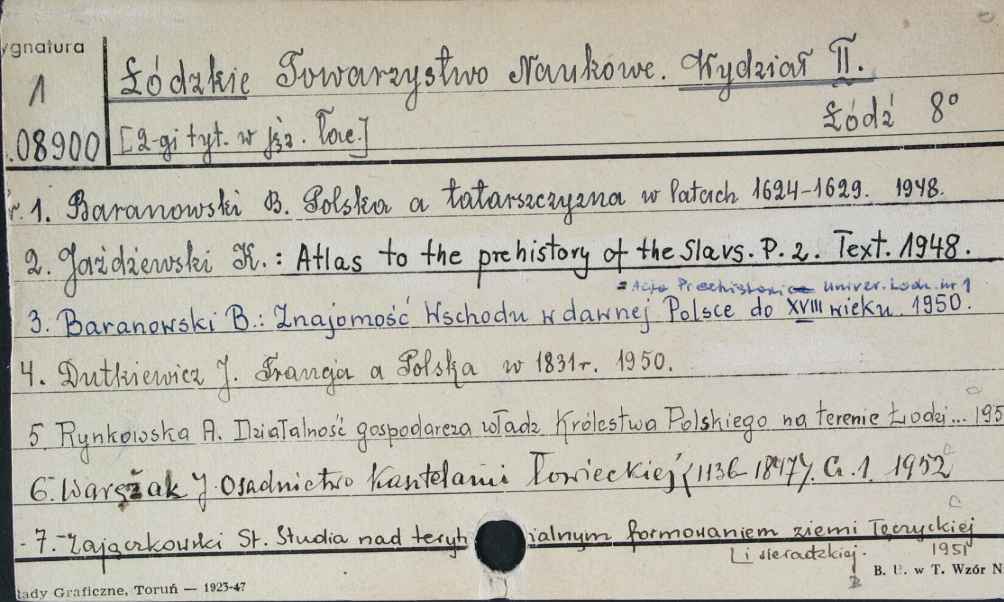 ygnatura
1
Łódzkie Towarzystwo Naukowe. Wydział II.
Łódź 8°
.08900
[2-gi tyt. w jęz. łac.]
r. 1. Baranowski B. Polska a tatarszczyzna w latach 1624-1629. 1948.
2. Jażdżewski K.: Atlas to the prehistory of the Slavs. P. 2. Text. 1948.
= Acta Praehistorica Univer. Lodz. nr 1
3. Baranowski B.: Znajomość Wschodu w dawnej Polsce do XVIII wieku. 1950.
4. Dutkiewicz J. Francja a Polska w 1831 r. 1950.
5 Rynkowska A. Działalność gospodarcza władz Królestwa Polskiego na terenie Łodzi... 195
6. Warężak J. Osadnictwo kasztelanii łowieckiej (1136-1847). Cz. 1. 1952
- 7. Zajączkowski St. Studia nad teryt ialnym formowaniem ziemi Łęczyckiej
i sieradzkiej. 1951
łady Graficzne, Toruń — 1923-47
B. U. w T. Wzór N